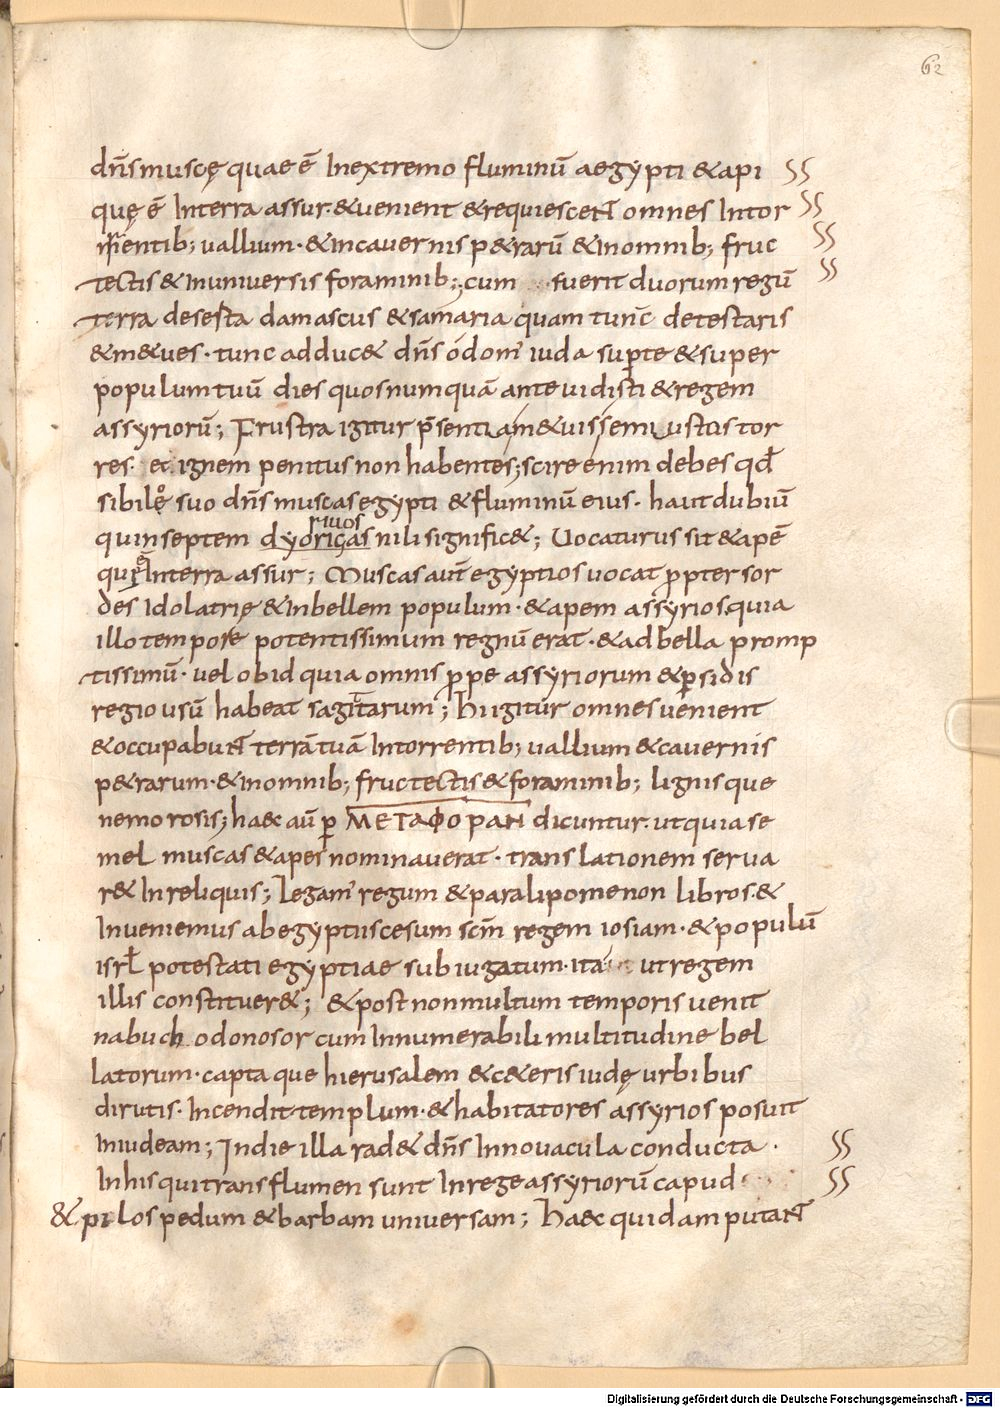 62
dn̄s muscę quae ē Inextremo fluminū aegypti & api
quę ē Interra assur. & uenient & requiescent omnes Intor
rentib; uallium. & incauernis p&rarū & inomnib; fruc
tectis & inuniuersis foraminib; cum fuerit duorum regū
terra deserta damascus & samaria quam tunc detestaris
& m&ues. tunc adduc& dn̄s o dom̄ iuda sup̱ te & super
populum tuū dies quos numquā ante uidisti & regem
assyriorū; Frustra igitur p̄sentiam &uissem ustos tor
res. et ignem penitus non habentes; scire enim debes qđ
sibilo suo dn̄s muscas egypti & fluminū eius. haut dubiū
quin septem dyoriças nili signific&; Uocaturus sit & apē
riuos
quę ē Interra assur; Muscas aut̄ egyptios uocat ꝓpter sor
des idolatrię & inbellem populum. & apem assyrios quia
illo tempore potentissimum regnū erat. & ad bella promp
tissimū. uel ob id quia omnis ꝓpe assyriorum & p̱sidis
regio usū habeat sagittarum; Hi igitur omnes uenient
& occupabunt terrā tuā Intorrentib; uallium & cauernis
p&rarum. & inomnib; fructectis & foraminib; lignisque
nemorosis; haec aū p̱ ΜΕΤΑΦΟΡΑΝ dicuntur. ut quia se
mel muscas & apes nominauerat. translationem serua
r& In reliquis; Legam̄ regum & paralipomenon libros. &
Inueniemus ab egyptiis cesum scm̄ regem iosiam. & populū
isrł potestati egyptiae subiugatum. ita ut regem
illis constituer&; & post non multum temporis uenit
nabuchodonosor cum Innumerabili multitudine bel
latorum. captaque hierusalem & c&eris iudę urbibus
dirutis. Incendit templum. & habitatores assyrios posuit
Iniudeam; Indie illa rad& dn̄s Innouacula conducta.
Inhis qui trans flumen sunt Inrege assyriorū capud
& pilos pedum & barbam uniuersam; Haec quidam putant
Digitalisierung gefördert durch die Deutsche Forschungsgemeinschaft - DFG